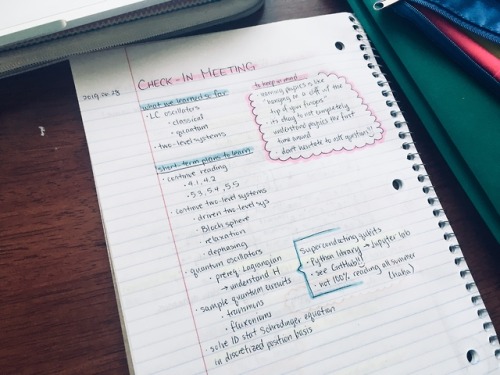 2019.06.28
CHECK-IN MEETING
what we learned so far
· LC oscillators
· classical
· quantum
· two-level systems
short-term plans to learn
· continue reading
· 4.1, 4.2
· 5.3, 5.4, 5.5
· continue two-level systems
· driven two-level sys
· Bloch sphere
· relaxation
· dephasing
· quantum oscillators
· prereq Lagrangian
→ understand H
· sample quantum circuits
· transmons
· fluxoniums
· solve 1D stat Schrodinger equation
in discretized position basis
to keep in mind
· learning physics is like
"hanging on a cliff at the
tip of your fingers"
· it's okay to not completely
understand physics the first
time around
· don't hesitate to ask questions!!
superconducting qubits
· Python library → Jupyter lab
· see GitHub!
· not 100% reading all summer
(haha)